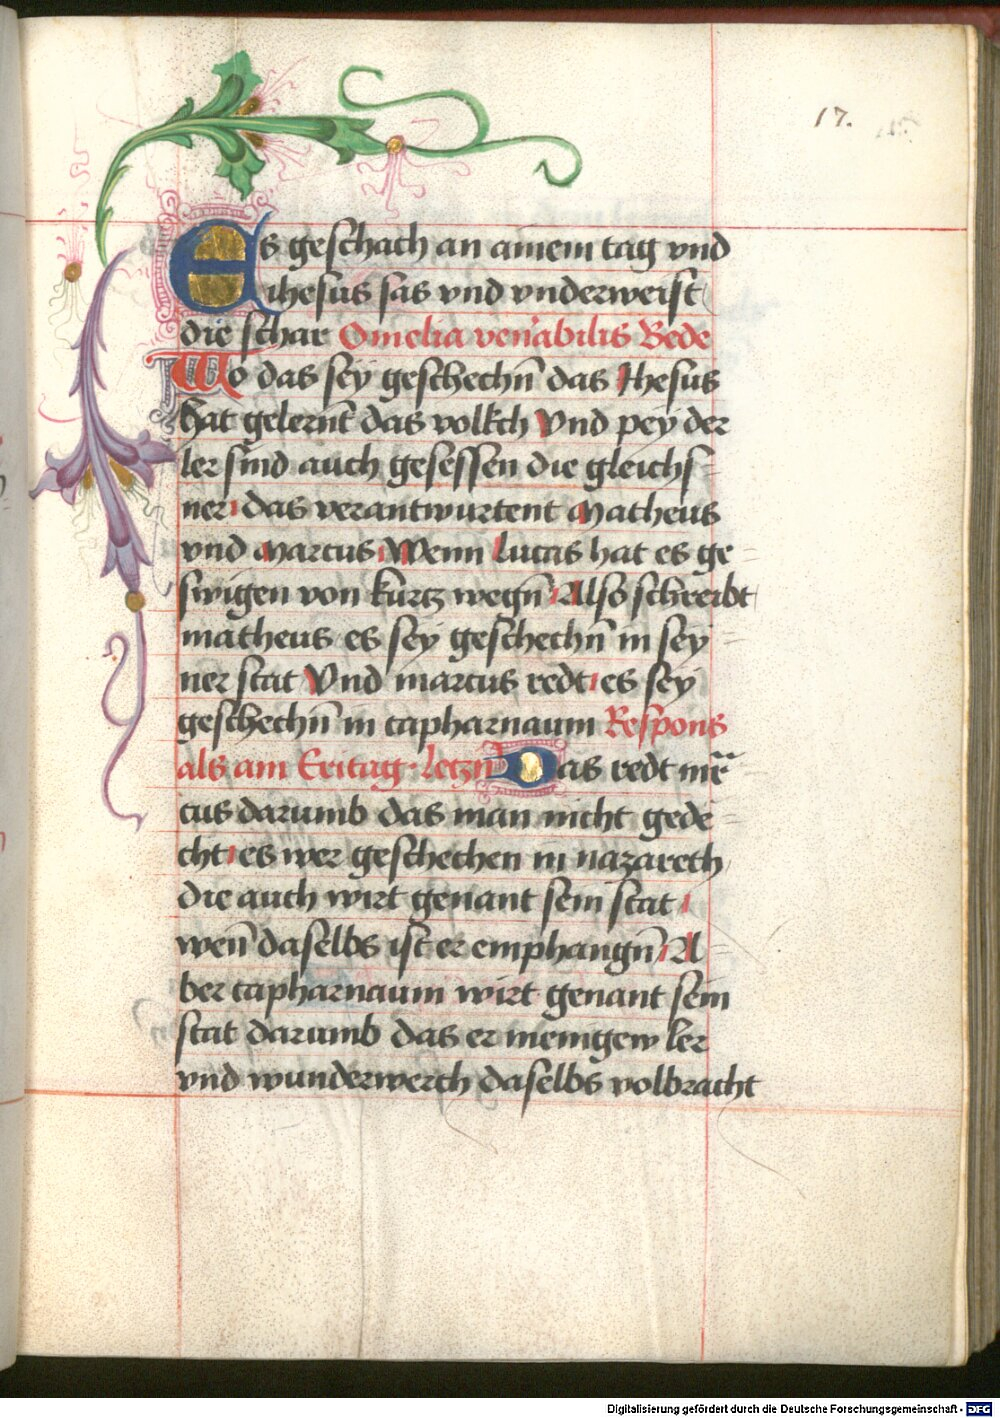 17.
Es geschach an ainem tag vnd
ihesus sas vnd vnderweist
die schar Omelia ven̄abilis Bede
Wo das sey geschechn̄ das Ihesus
hat gelernt̄ das volkch Vnd pey der
ler sind auch gesessen die gleichs=
ner das verantwurtent Matheus
vnd Marcus Wenn lucas hat es ge=
swigen von kurtz wegn̄ Also schreibt
matheus es sey geschechn̄ in sey=
ner stat Vnd marcus redt es sey
geschechn̄ in capharnaum Respons
als am Eritag letzn̄ Das redt mr̄=
cus darumb das man nicht gede=
cht es wer geschechen in nazareth
die auch wirt genant sein stat
wen̄ daselbs ist er emphangn̄ A=
ber capharnaum wirt genant sein
stat darumb das er menigew ler
vnd wunderwerch daselbs volbracht
Digitalisierung gefördert durch die Deutsche Forschungsgemeinschaft - DFG